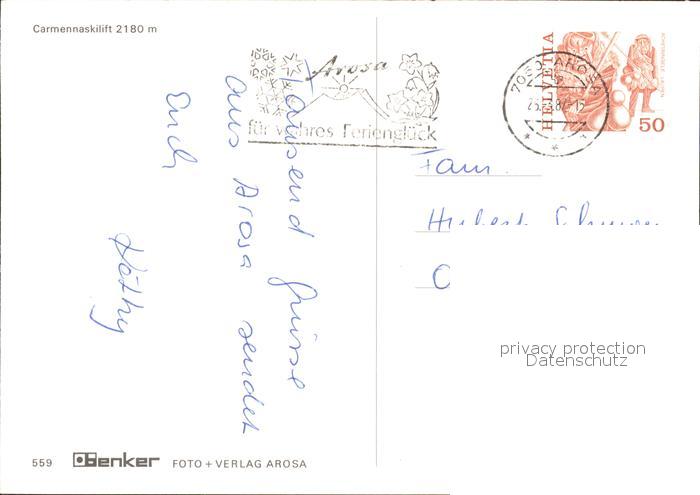 Carmennaskilift 2180 m
Arosa
für wahres Ferienglück
7050 AROSA
HELVETIA
50
Tausend Grüsse
aus Arosa sendet
Euch
Käthy
Fam.
Hubert
privacy protection
Datenschutz
559 Benker FOTO + VERLAG AROSA